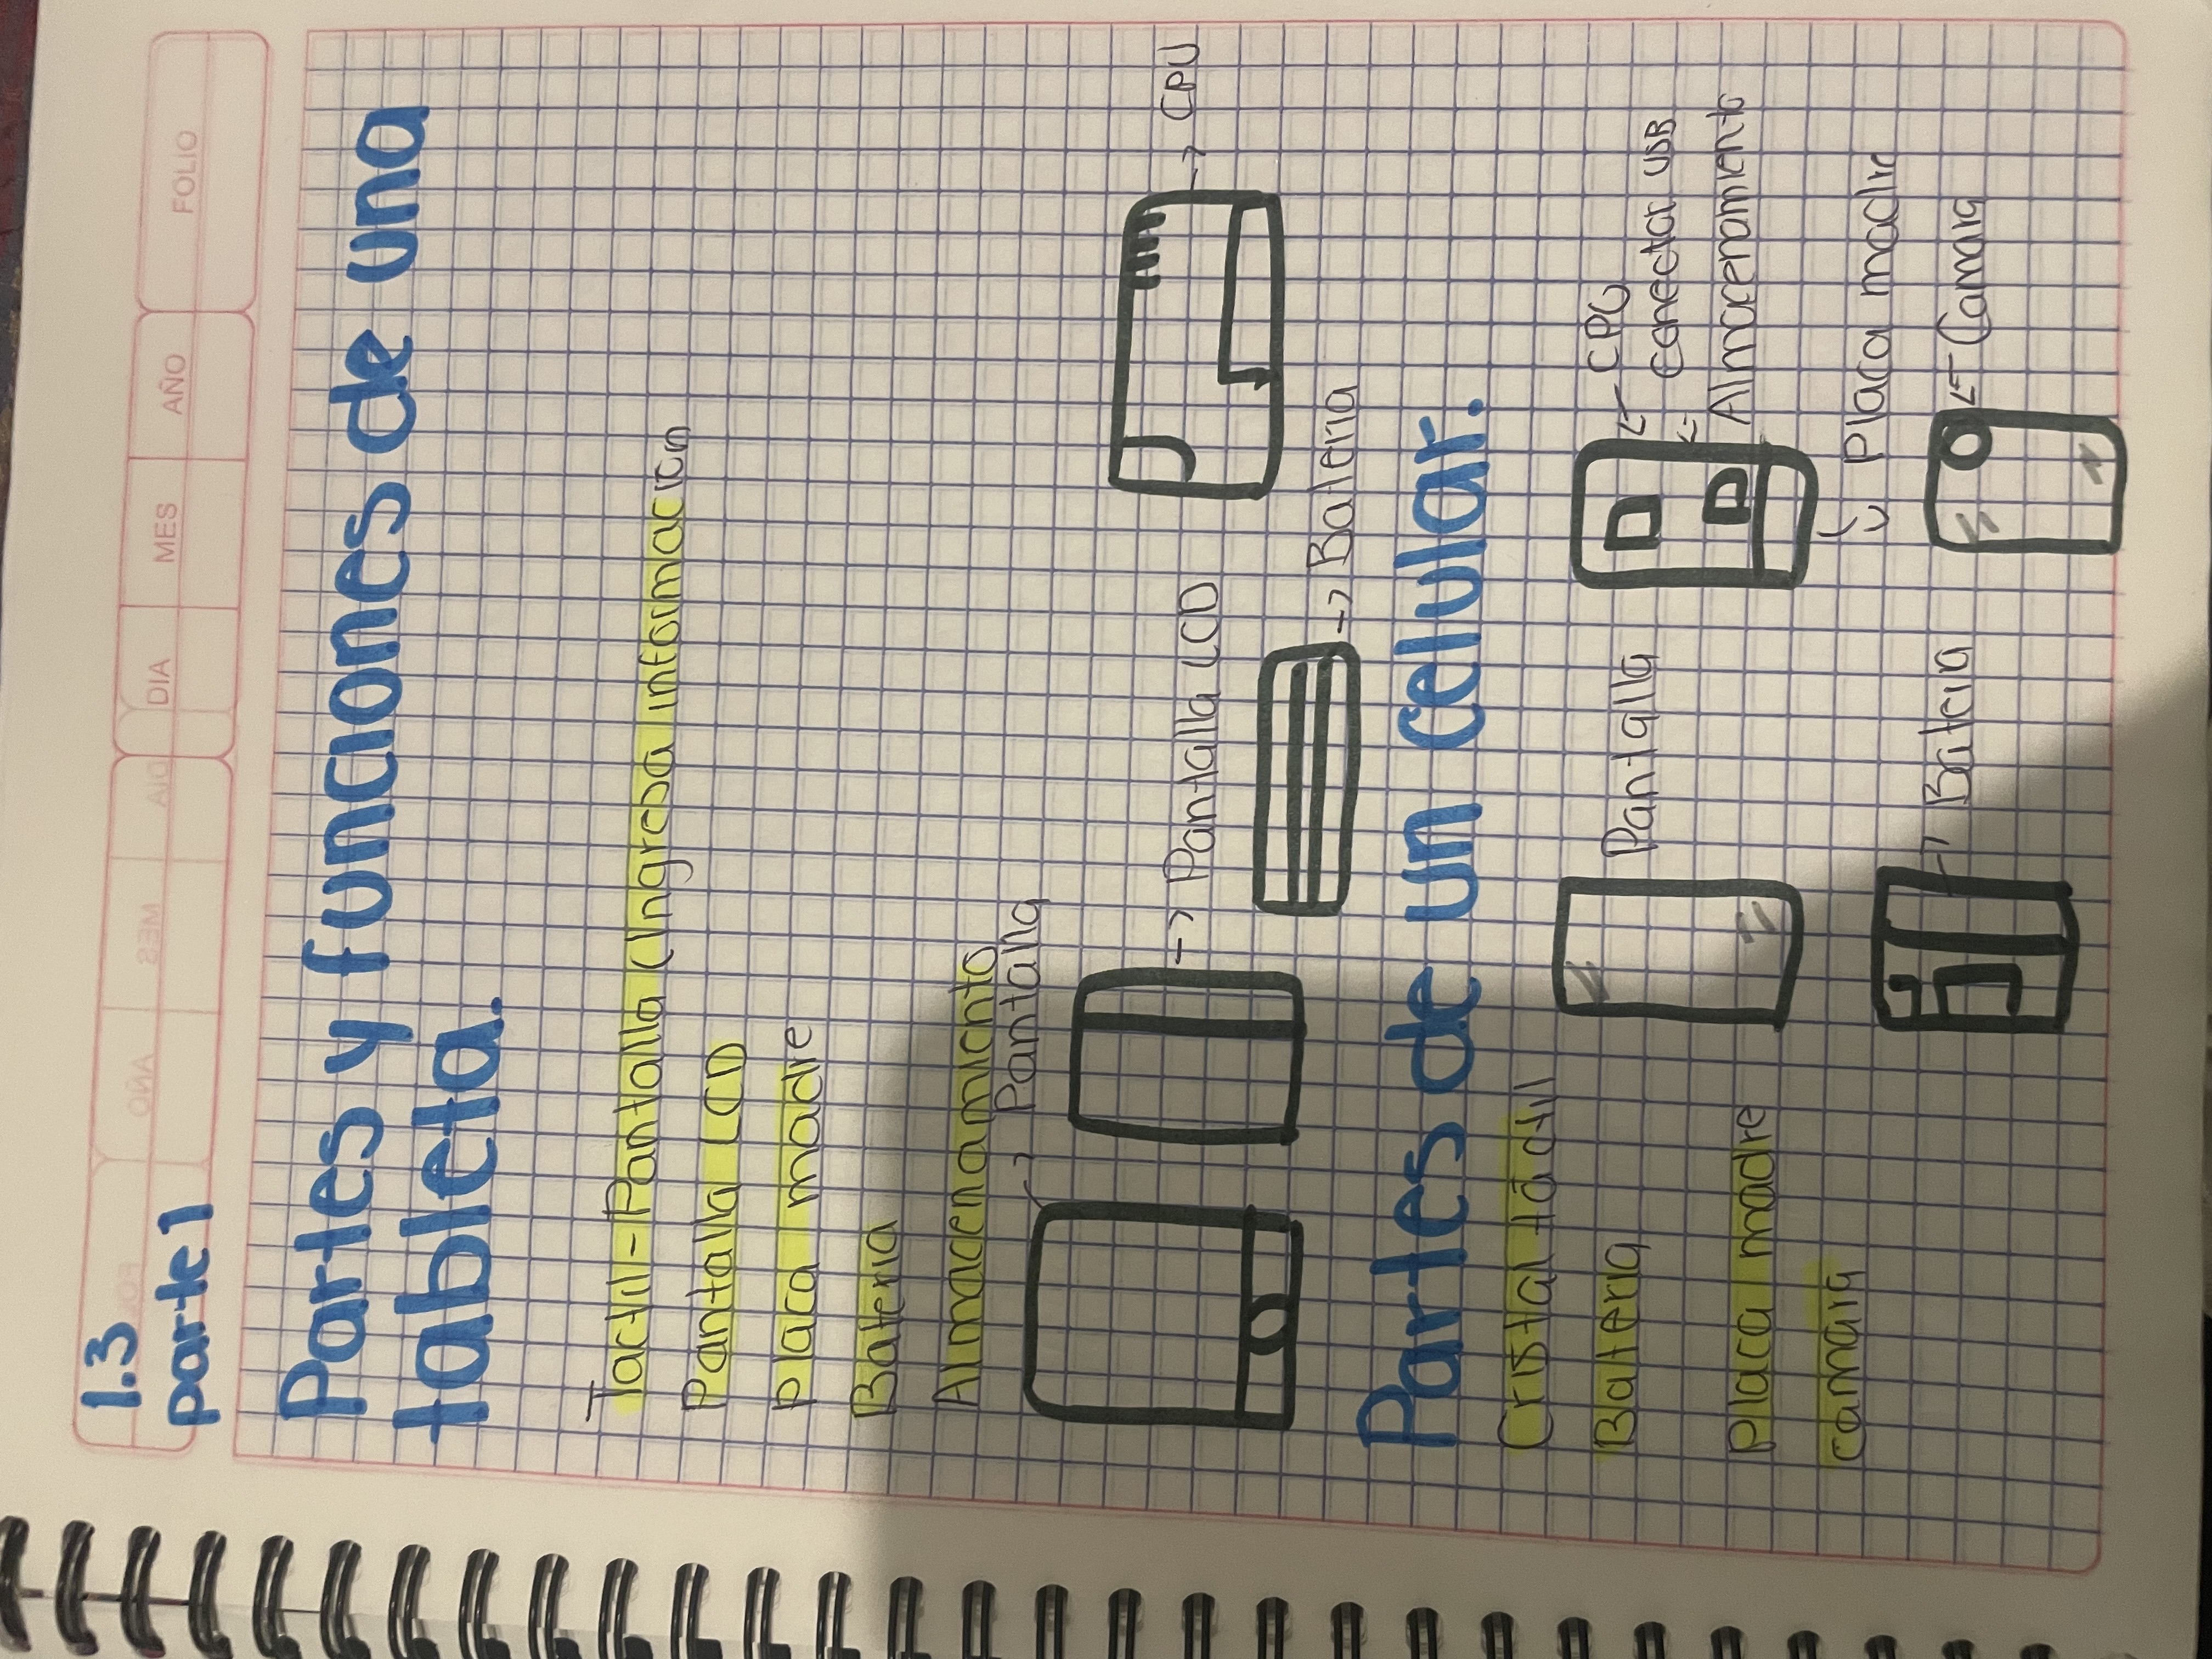 1.3
parte 1
DIA MES AÑO FOLIO
Partes y funciones de una
tableta.
Tactil-Pantalla (Ingresa informacion
Pantalla LCD
Placa madre
Bateria
Almacenamiento
Pantalla
Pantalla LCD
CPU
Bateria
Partes de un celular.
Cristal táctil
Bateria
Placa madre
camara
Pantalla
CPU
conector USB
Almacenamiento
Placa madre
Bateria
Camara